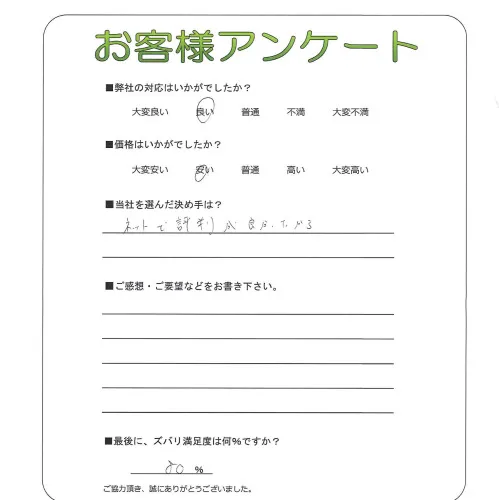 お客様アンケート
■弊社の対応はいかがでしたか?
大変良い 良い 普通 不満 大変不満
■価格はいかがでしたか?
大変安い 安い 普通 高い 大変高い
■当社を選んだ決め手は?
ネットで評判が良かったから
■ご感想・ご要望などをお書き下さい。
■最後に、ズバリ満足度は何%ですか?
80 %
ご協力頂き、誠にありがとうございました。